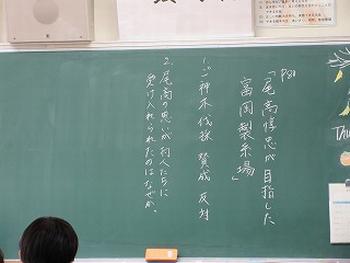 P80
「尾高惇忠が目指した
富岡製糸場」
1.ご神木伐採 賛成 反対
2.尾高の思いが村人たちに
受け入れられたのはなぜか。